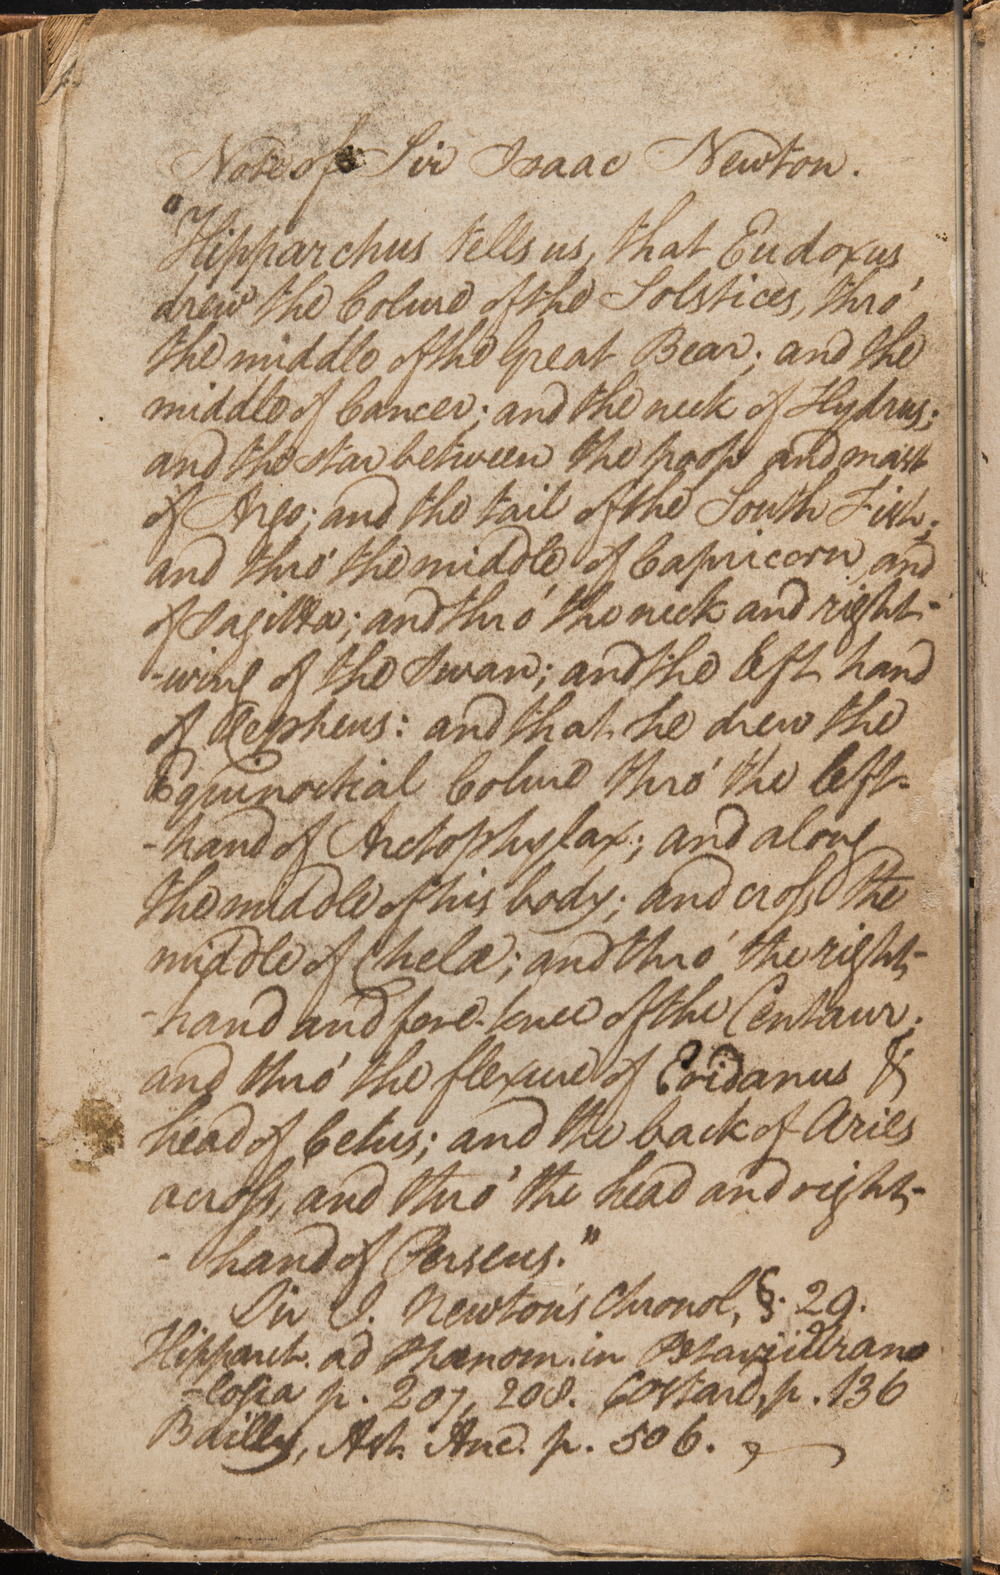 Note of Sir Isaac Newton.
"Hipparchus tells us, that Eudoxus
drew the Colure of the Solstices, thro'
the middle of the Great Bear; and the
middle of Cancer; and the neck of Hydrus;
and the star between the poop and mast
of Argo; and the tail of the South Fish;
and thro' the middle of Capricorn, and
of Sagitta; and thro' the neck and right-
-wing of the Swan; and the left hand
of Cepheus: and that he drew the
Equinoctial Colure thro' the left-
-hand of Arctophylax; and along
the middle of his body; and cross the
middle of Chelæ; and thro' the right-
-hand and fore-knee of the Centaur;
and thro' the flexure of Eridanus &
head of Cetus; and the back of Aries
across, and thro' the head and right-
-hand of Perseus."
Sir I. Newton's Chronol, §. 29.
Hipparch. ad Phænom. in Petavii Urano
-logia p. 207, 208. Costard, p. 136
Bailly, Ast. Anc. p. 506.